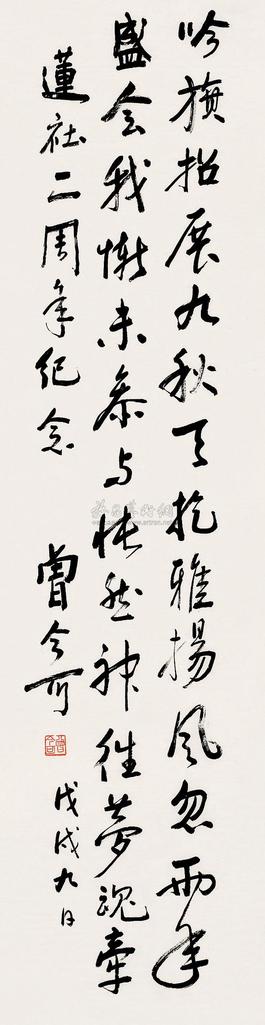 吟旗招展九秋天扢雅揚風忽兩年
盛会我慚未參与悵然神往夢魂牽
蓮社二周年纪念
曾今可
戊戌九日